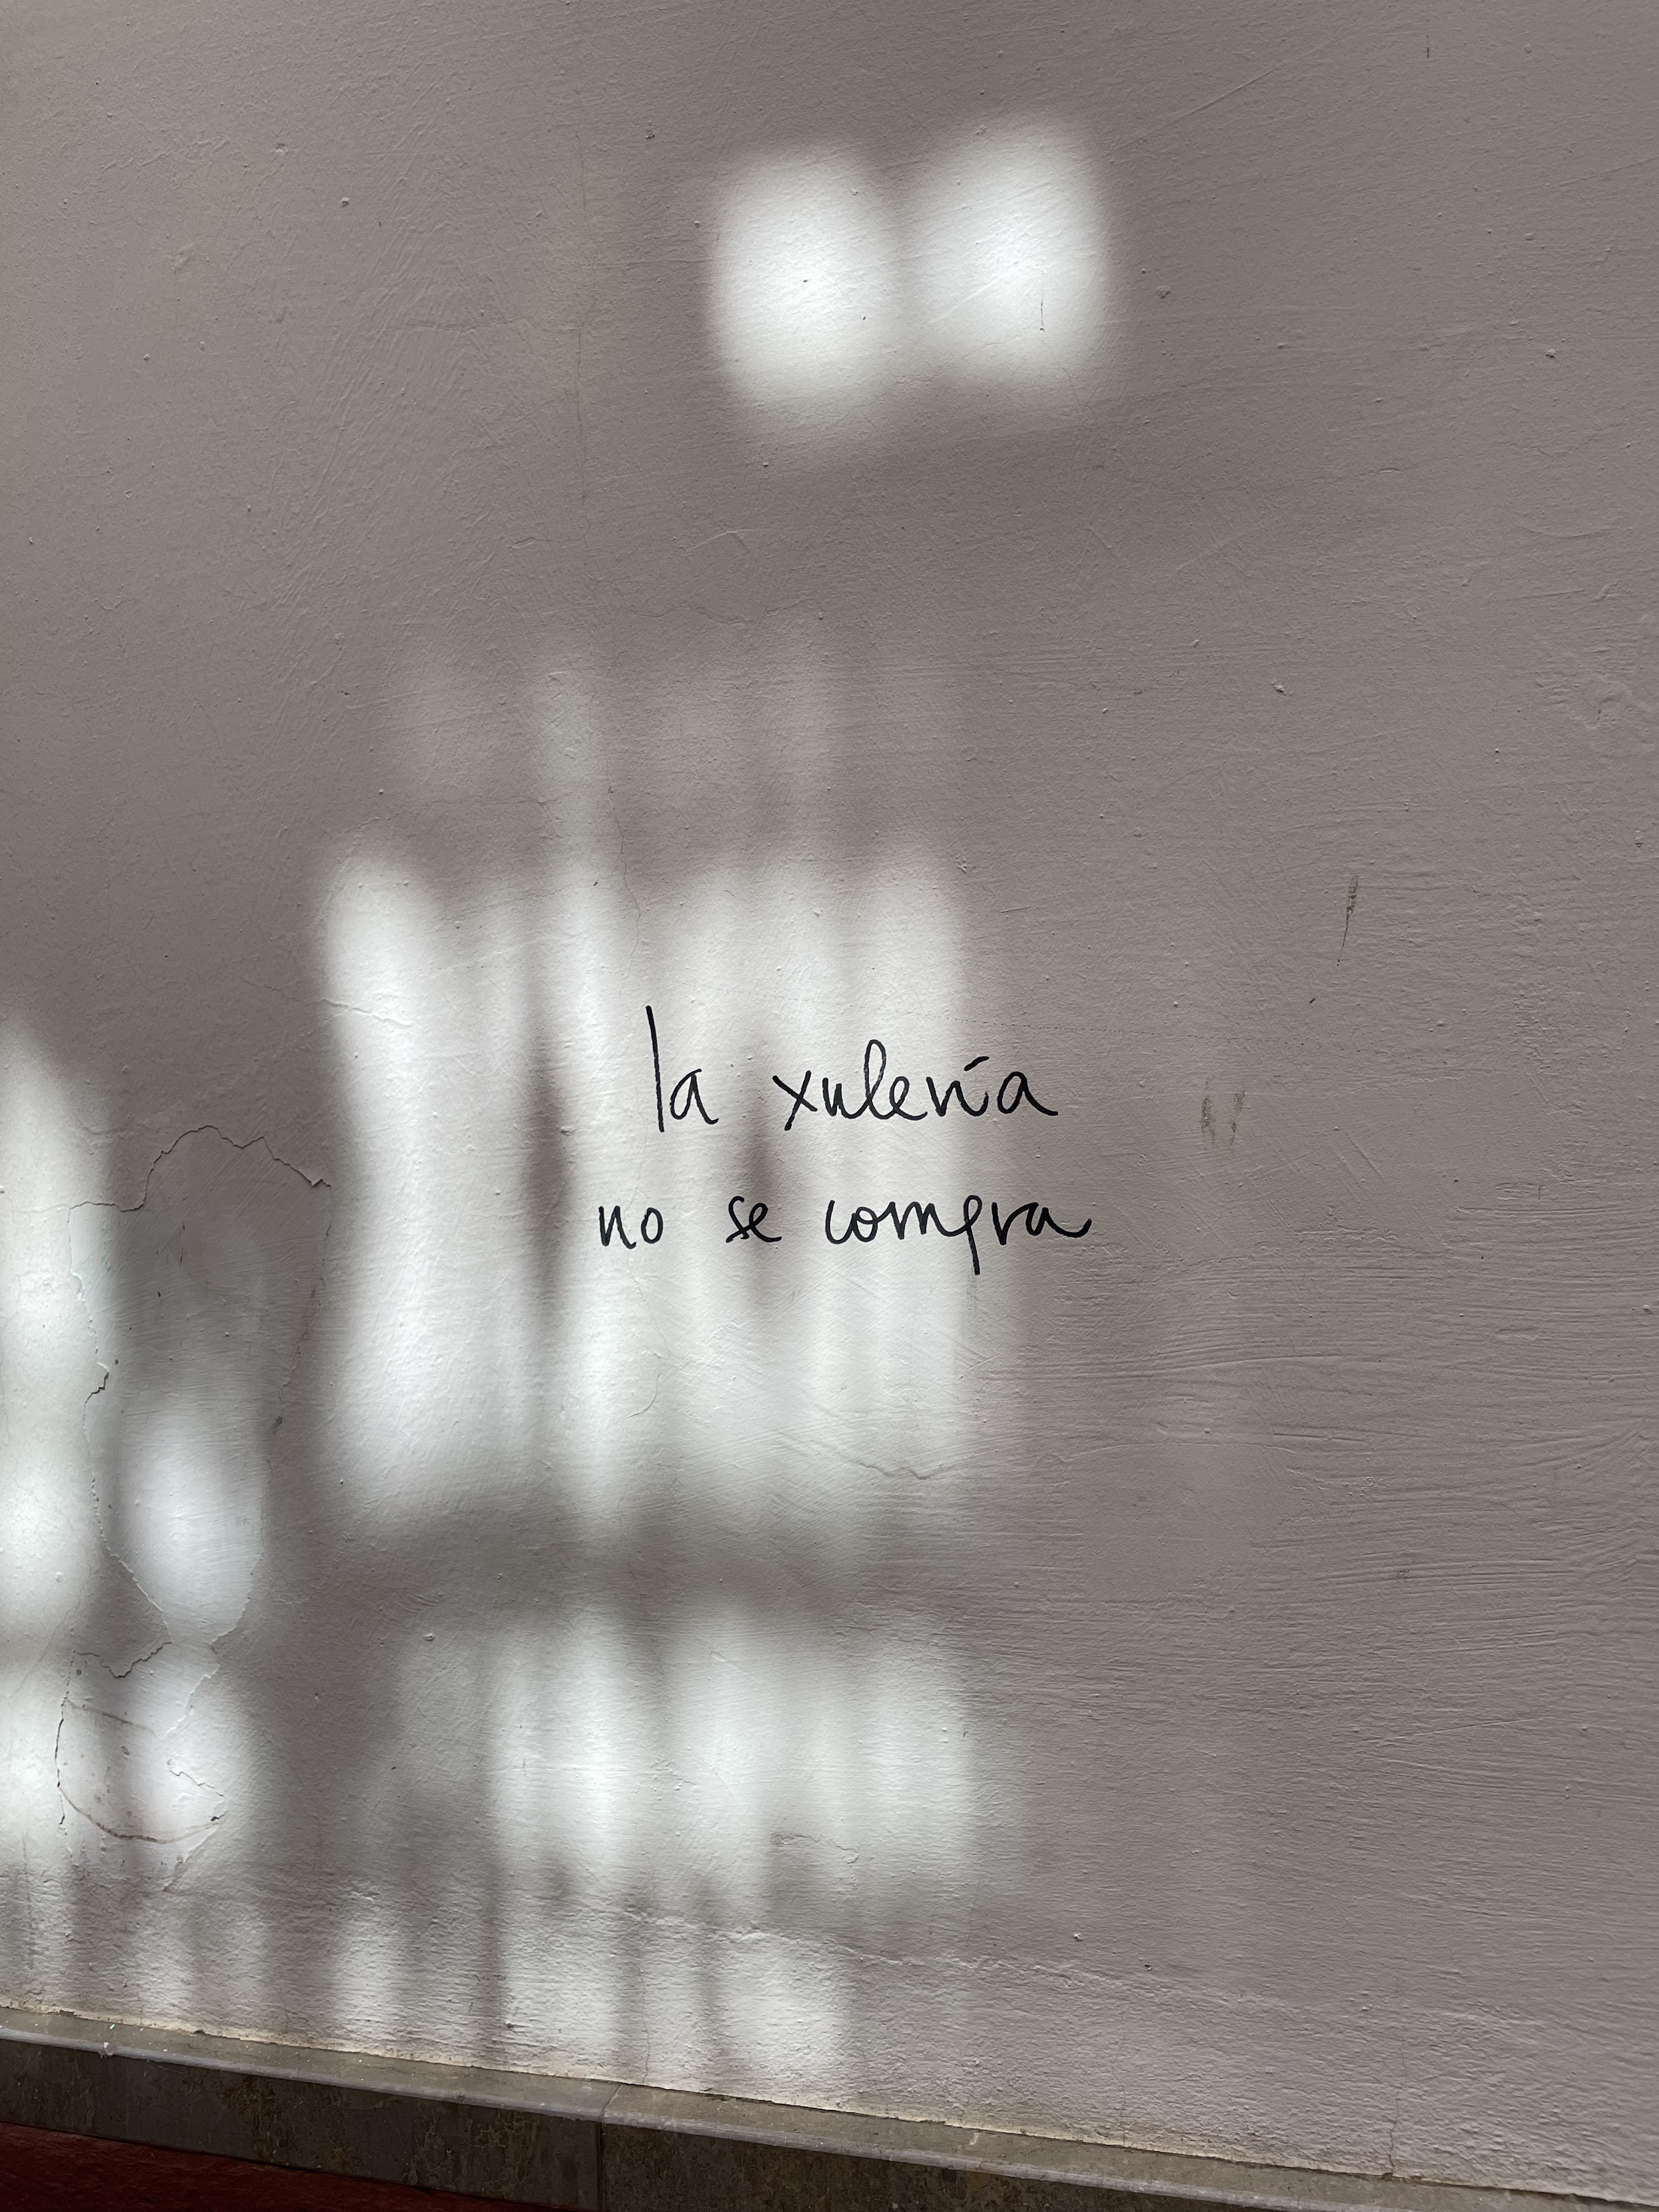 la xulería
no se compra